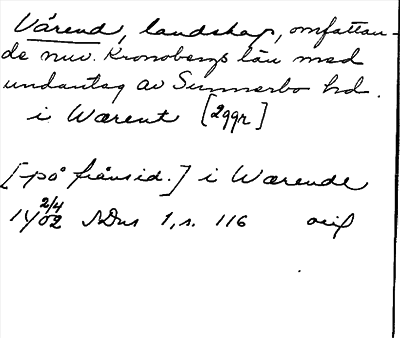 Värend, landskap, omfattan-
de nuv. Kronobergs län med
undantag av Sunnerbo hd.
i Wærent [2ggr]
[på frånsid.] i Wærende
14 2/4 02 SDns 1, s. 116 orig